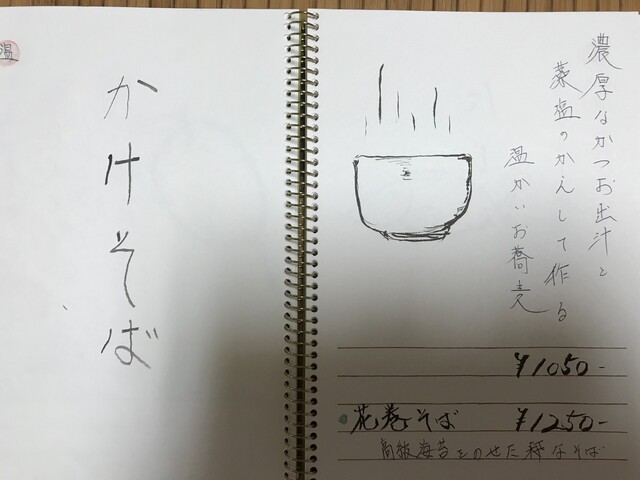 温
かけそば
濃厚なかつお出汁と
藻塩のかえしで作る
温かいお蕎麦
¥1050-
花巻そば ¥1250-
高級海苔をのせた粋なそば